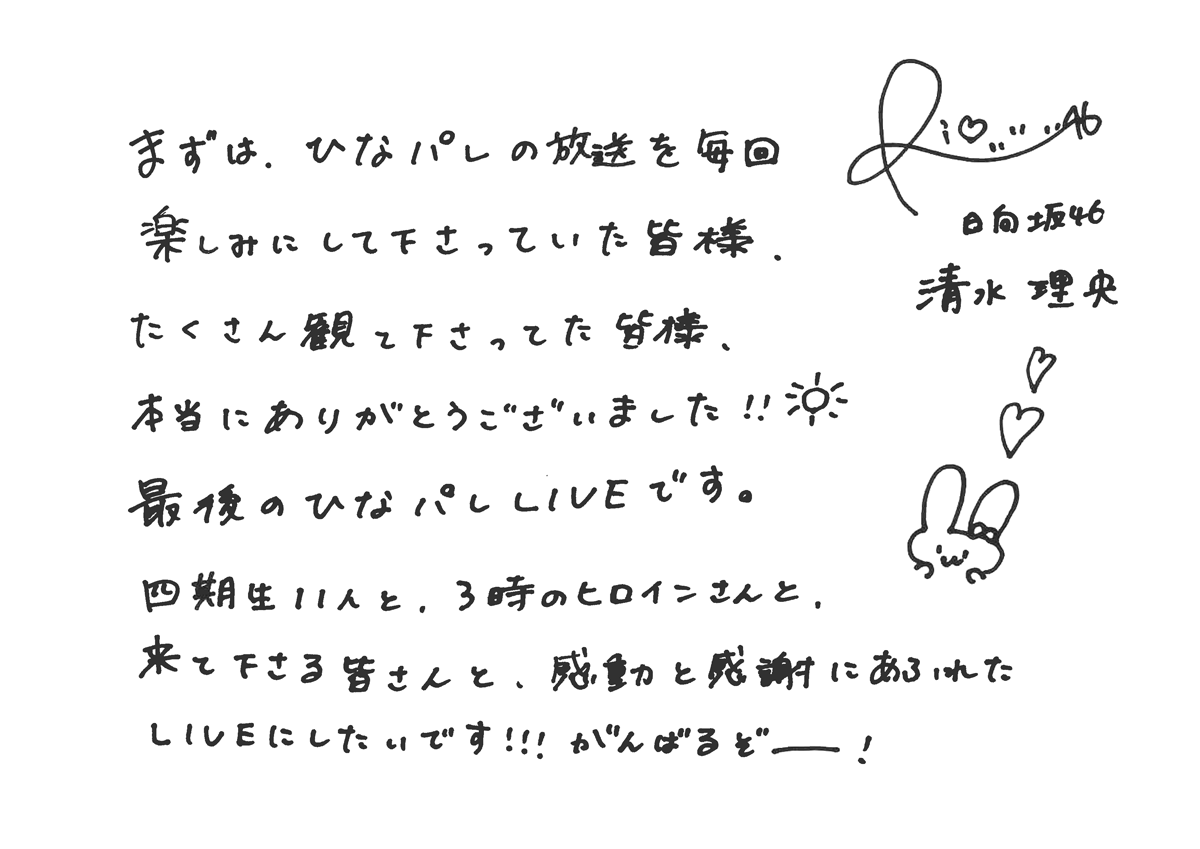 まずは、ひなパレの放送を毎回
楽しみにして下さっていた皆様、
たくさん観て下さってた皆様、
本当にありがとうございました!!
最後のひなパレLIVEです。
四期生11人と、3時のヒロインさんと、
来て下さる皆さんと、感動と感謝にあふれた
LIVEにしたいです!!! がんばるぞー!
Rio 46
日向坂46
清水 理央